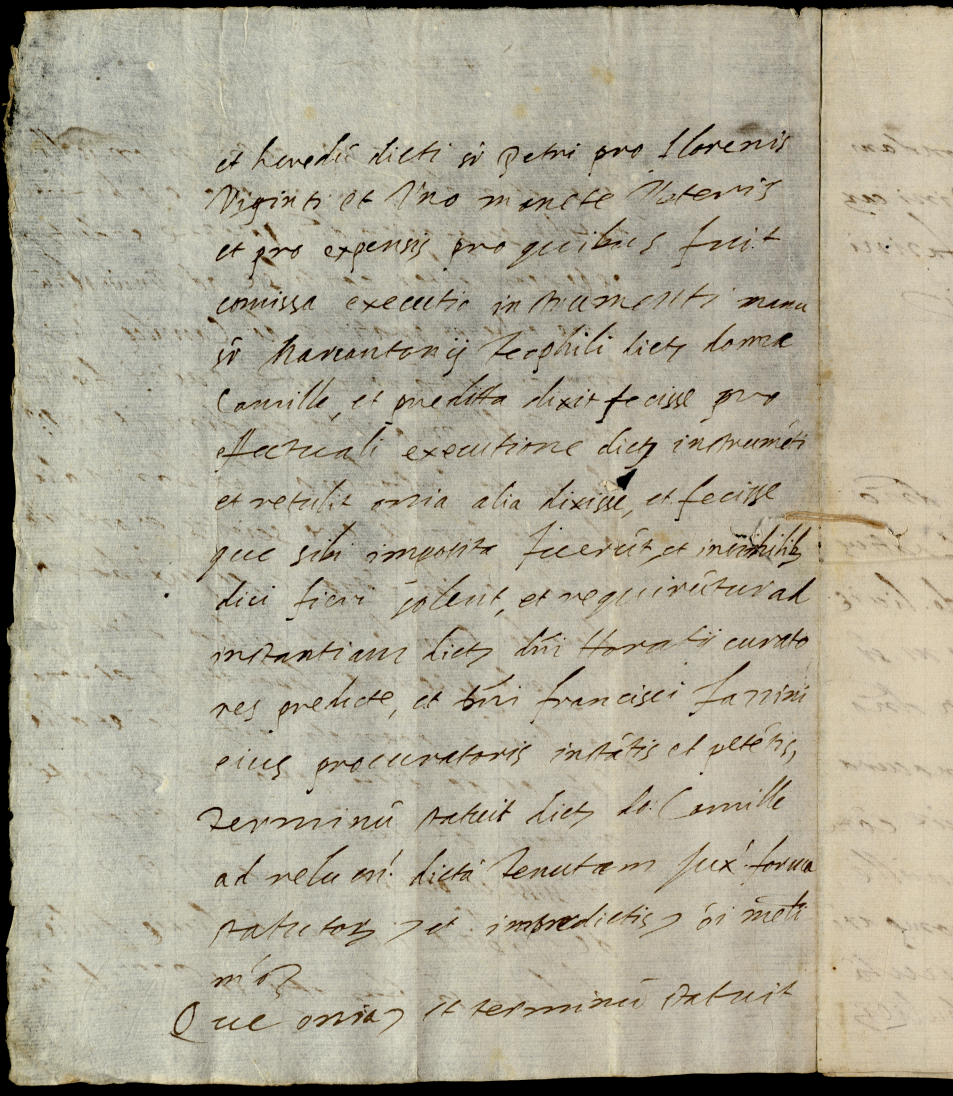 et heredū dicti sr̄ Petri pro florenis
Viginti et Vno monete Veteris
et pro expensis pro quibus fuit
comissa executio instrumenti manu
sr̄ Marcantonij Teophili dictȩ domnȩ
Camille, et predicta dixit fecisse pro
effectuali executione dictȩ instrumēti
et retulit omia alia dixisse, et fecisse
que sibi imposita fuerūt, et in
dici fieri solent, et requirūtur ad
instantiam dictȩ dn̄i Horatii curato
res predicte, et dn̄i francisci
eius procuratoris instātis et petētis,
Terminū statuit dictȩ do: Camille
ad reluen' dictā Tenutam Jux' forma
statutoꝝ, et inpredictis, oī meli
m'o
Que omia, et terminū statuit